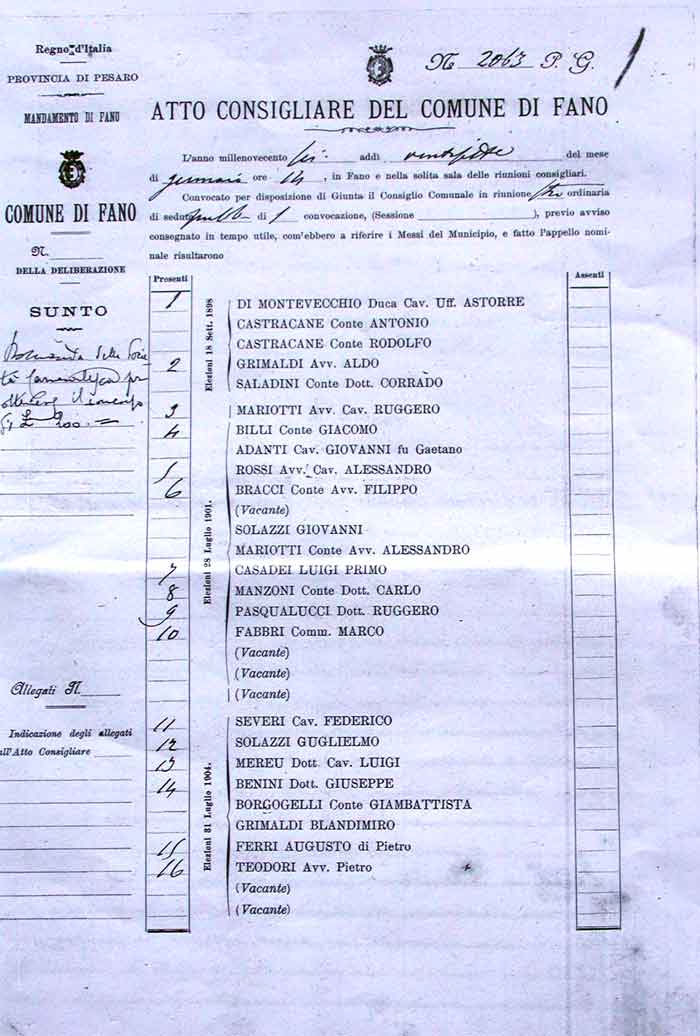 Regno d'Italia
PROVINCIA DI PESARO
MANDAMENTO DI FANO
COMUNE DI FANO
N.
DELLA DELIBERAZIONE
SUNTO
Domanda della Socie
tà
£ 200.=
Allegati N.
Indicazione degli allegati
all'Atto Consigliare
N 2063 P. G.
ATTO CONSIGLIARE DEL COMUNE DI FANO
L'anno millenovecento sei addì ventisette del mese
di gennaio ore 14, in Fano e nella solita sala delle riunioni consigliari.
Convocato per disposizione di Giunta il Consiglio Comunale in riunione ordinaria
di seduta di 1 convocazione, (Sessione ), previo avviso
consegnato in tempo utile, com'ebbero a riferire i Messi del Municipio, e fatto l'appello nomi-
nale risultarono
Presenti
Assenti
Elezioni 18 Sett. 1898
1 DI MONTEVECCHIO Duca Cav. Uff. ASTORRE
CASTRACANE Conte ANTONIO
CASTRACANE Conte RODOLFO
2 GRIMALDI Avv. ALDO
SALADINI Conte Dott. CORRADO
Elezioni 28 Luglio 1901.
3 MARIOTTI Avv. Cav. RUGGERO
4 BILLI Conte GIACOMO
ADANTI Cav. GIOVANNI fu Gaetano
5 ROSSI Avv. Cav. ALESSANDRO
6 BRACCI Conte Avv. FILIPPO
(Vacante)
SOLAZZI GIOVANNI
MARIOTTI Conte Avv. ALESSANDRO
7 CASADEI LUIGI PRIMO
8 MANZONI Conte Dott. CARLO
9 PASQUALUCCI Dott. RUGGERO
10 FABBRI Comm. MARCO
(Vacante)
(Vacante)
(Vacante)
Elezioni 31 Luglio 1904.
11 SEVERI Cav. FEDERICO
12 SOLAZZI GUGLIELMO
13 MEREU Dott. Cav. LUIGI
14 BENINI Dott. GIUSEPPE
BORGOGELLI Conte GIAMBATTISTA
GRIMALDI BLANDIMIRO
15 FERRI AUGUSTO di Pietro
16 TEODORI Avv. Pietro
(Vacante)
(Vacante)